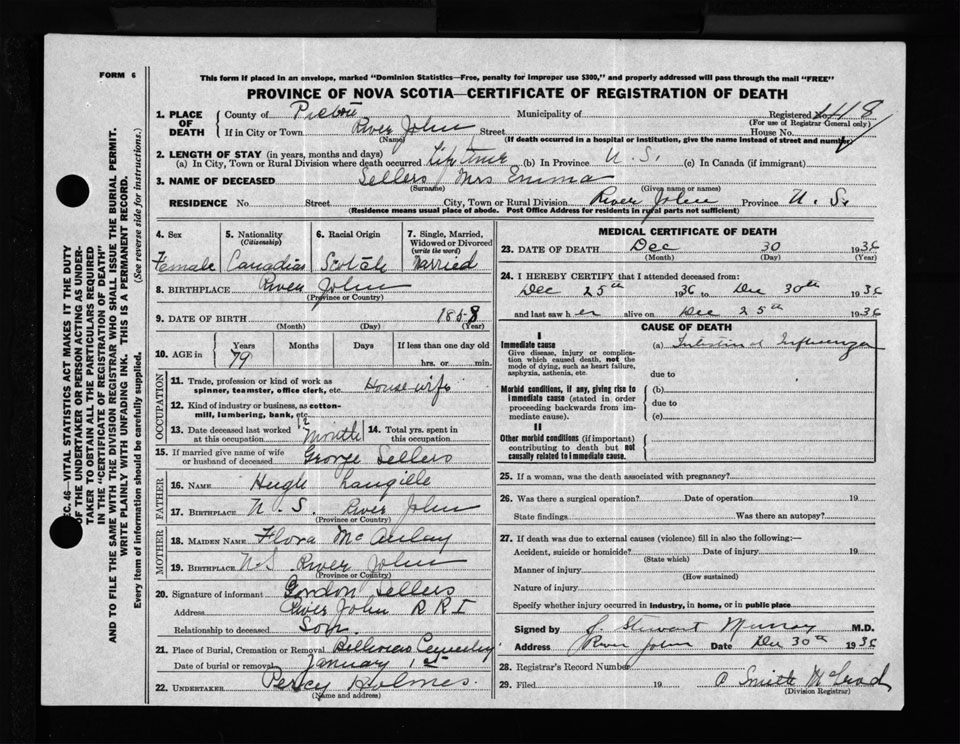 FORM 6
This form if placed in an envelope, marked "Dominion Statistics—Free, penalty for improper use $300," and properly addressed will pass through the mail "FREE"
PROVINCE OF NOVA SCOTIA—CERTIFICATE OF REGISTRATION OF DEATH
1. PLACE OF DEATH County of Pictou Municipality of Registered No.
(For use of Registrar General only)
If in City or Town River John Street House No.
(Name) (If death occurred in a hospital or institution, give the name instead of street and number)
2. LENGTH OF STAY (in years, months and days)
(a) In City, Town or Rural Division where death occurred life time (b) In Province N.S. (c) In Canada (if immigrant)
3. NAME OF DECEASED Sellers Mrs Emma
(Surname) (Given name or names)
RESIDENCE No Street City, Town or Rural Division River John Province N.S.
(Residence means usual place of abode. Post Office Address for residents in rural parts not sufficient)
4. Sex Female
5. Nationality (Citizenship) Canadian
6. Racial Origin Scotch
7. Single, Married, Widowed or Divorced (write the word) Married
8. BIRTHPLACE River John
(Province or Country)
9. DATE OF BIRTH 1858
(Month) (Day) (Year)
10. AGE in Years Months Days If less than one day old
79 hrs. or min.
OCCUPATION
11. Trade, profession or kind of work as spinner, teamster, office clerk, etc. Housewife
12. Kind of industry or business, as cotton-mill, lumbering, bank, etc.
13. Date deceased last worked at this occupation month
14. Total yrs. spent in this occupation
15. If married give name of wife or husband of deceased George Sellers
FATHER
16. NAME Hugh Langille
17. BIRTHPLACE N.S. River John
(Province or Country)
MOTHER
18. MAIDEN NAME Flora McAulay
19. BIRTHPLACE N.S River John
(Province or Country)
20. Signature of informant Gordon Sellers
Address River John R R I
Relationship to deceased Son
21. Place of Burial, Cremation or Removal Cemetery
Date of burial or removal January 1st
22. UNDERTAKER Percy Holmes.
(Name and address)
MEDICAL CERTIFICATE OF DEATH
23. DATE OF DEATH Dec 30 1936
(Month) (Day) (Year)
24. I HEREBY CERTIFY that I attended deceased from:
Dec 25th 1936 to Dec 30th 1936
and last saw her alive on Dec 25th 1936
CAUSE OF DEATH
I
Immediate cause
Give disease, injury or complication which caused death, not the mode of dying, such as heart failure, asphyxia, asthenia, etc.
(a) Intestinal Influenza
due to
Morbid conditions, if any, giving rise to immediate cause (stated in order proceeding backwards from immediate cause).
(b)
due to
(c)
II
Other morbid conditions (if important) contributing to death but not causally related to immediate cause.
25. If a woman, was the death associated with pregnancy?
26. Was there a surgical operation? Date of operation 19
State findings Was there an autopsy?
27. If death was due to external causes (violence) fill in also the following:—
Accident, suicide or homicide? Date of injury 19
(State which)
Manner of injury
(How sustained)
Nature of injury
Specify whether injury occurred in industry, in home, or in public place
Signed by J. Stewart Murray M.D.
Address River John Date Dec 30th 1936
28. Registrar's Record Number
29. Filed 19 Smith McLeod
(Division Registrar)
SEC. 46—VITAL STATISTICS ACT MAKES IT THE DUTY
OF THE UNDERTAKER OR PERSON ACTING AS UNDER-
TAKER TO OBTAIN ALL THE PARTICULARS REQUIRED
IN THE "CERTIFICATE OF REGISTRATION OF DEATH"
AND TO FILE THE SAME WITH THE DIVISION REGISTRAR WHO SHALL ISSUE THE BURIAL PERMIT.
WRITE PLAINLY WITH UNFADING INK. THIS IS A PERMANENT RECORD.
Every item of information should be carefully supplied. (See reverse side for instructions.)